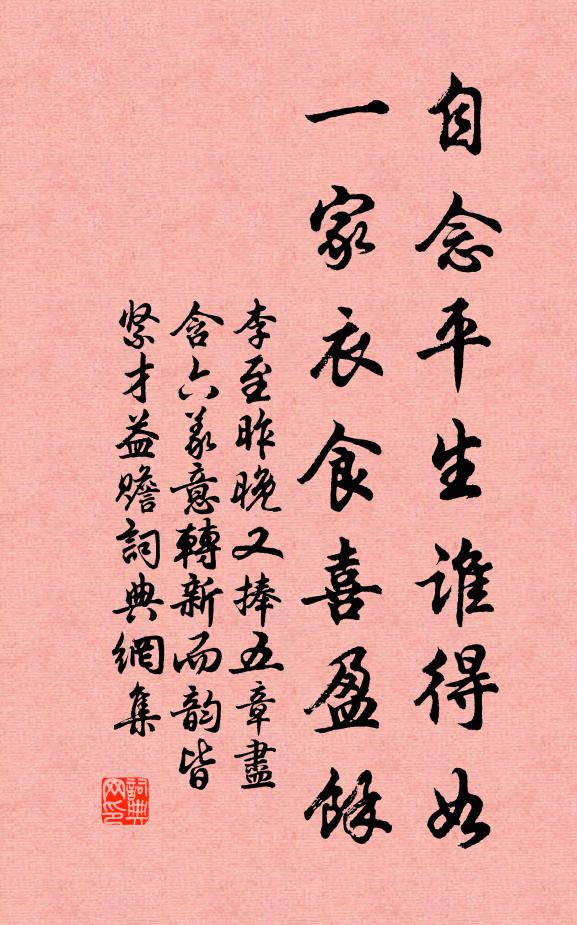 自念平生誰得如
一家衣食喜盈餘
李至昨晚又捧五章盡
含六義意轉新而韵皆
緊才益贍詞典網集
詞典網印